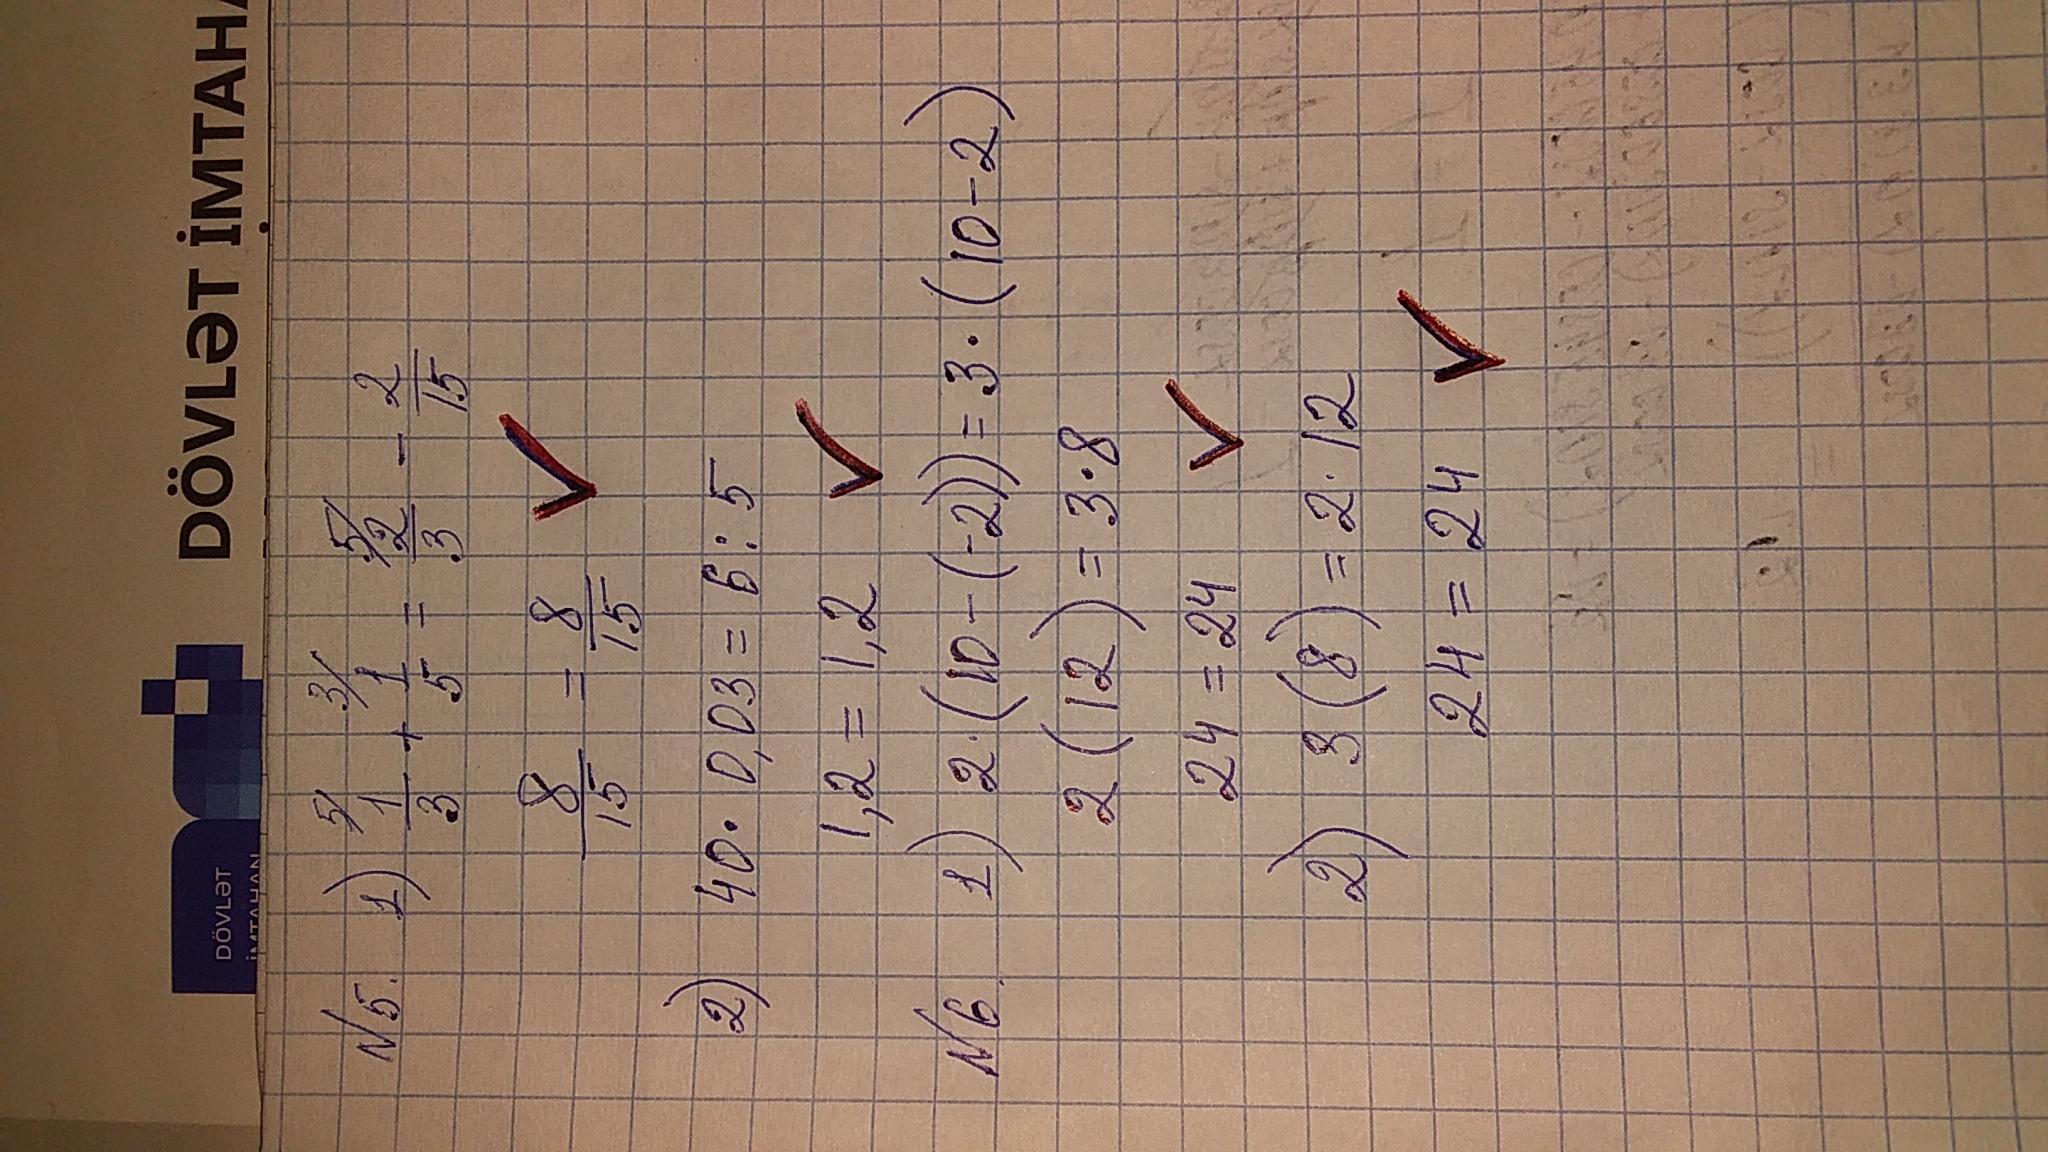 DÖVLƏT İMTAHA
DÖVLƏT
İMTAHAN
N5. 1) 5/ 1/3 + 3/ 1/5 = 5/ 2/3 - 2/15
8/15 = 8/15 ✓
2) 40·0,03=6:5
1,2=1,2 ✓
N6. 1) 2·(10-(-2))=3·(10-2)
2(12)=3·8
24=24 ✓
2) 3(8)=2·12
24=24 ✓